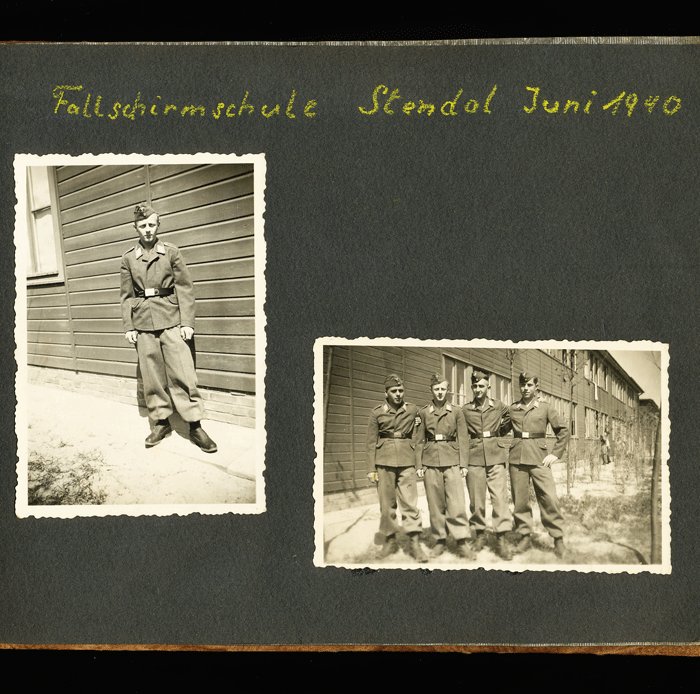 Fallschirmschule Stendal Juni 1940